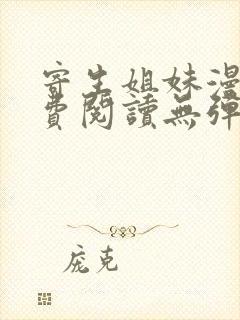 寄生姐妹漫
費閱讀無彈
庞克